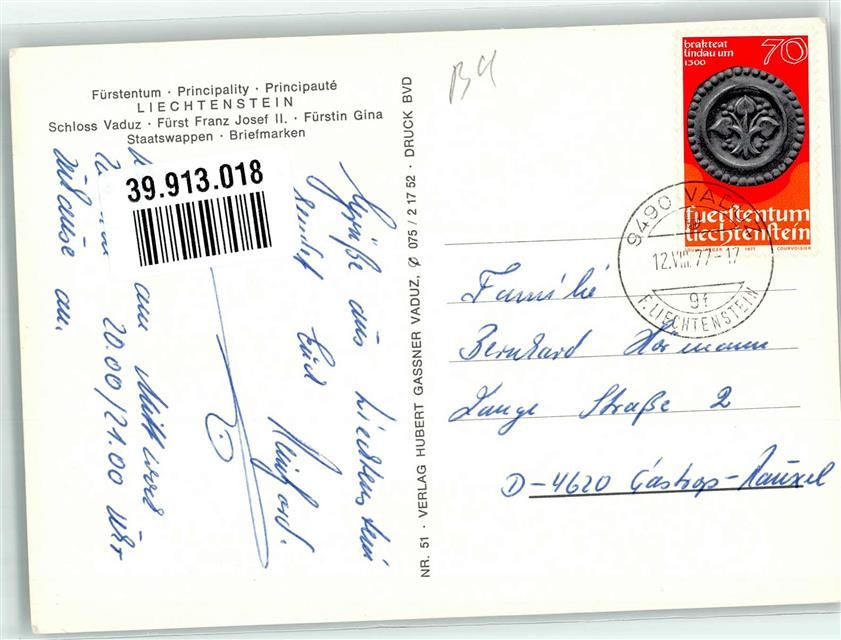 Fürstentum · Principality · Principauté
LIECHTENSTEIN
Schloss Vaduz · Fürst Franz Josef II. · Fürstin Gina
Staatswappen · Briefmarken
39.913.018
Grüße aus Liechtenstein
sendet Euch
am Mittwoch
20.00/21.00 Uhr
zuhause an.
NR. 51 · VERLAG HUBERT GASSNER VADUZ, ∅ 075 / 2 17 52 · DRUCK BVD
B4
brakteat
lindau um
1300
70
fuerstentum
liechtenstein
1977
COURVOISIER
9490 VADUZ
12.VIII.77-17
9f
F. LIECHTENSTEIN
Familie
Bernhard Hörmann
Lange Straße 2
D-4620 Castrop-Rauxel